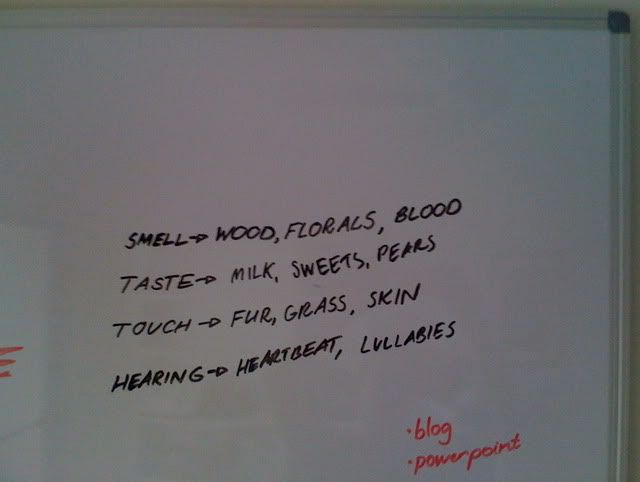 SMELL→ WOOD, FLORALS, BLOOD
TASTE→ MILK, SWEETS, PEARS
TOUCH → FUR, GRASS, SKIN
HEARING→ HEARTBEAT, LULLABIES
·blog
·powerpoint